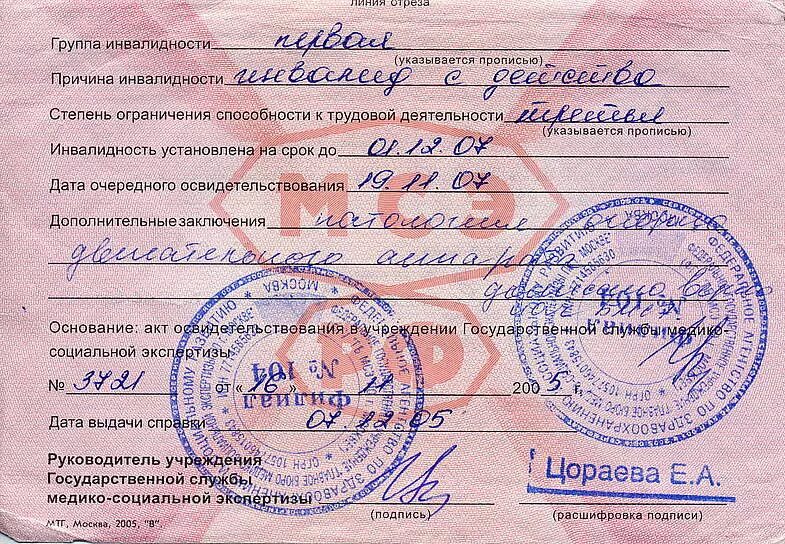 линия отреза
Группа инвалидности первая
(указывается прописью)
Причина инвалидности инвалид с детства
Степень ограничения способности к трудовой деятельности третья
(указывается прописью)
Инвалидность установлена на срок до 01.12.07
Дата очередного освидетельствования 19.11.07
Дополнительные заключения патология опорно
двигательного аппарата
МСЭ
РФ
Основание: акт освидетельствования в учреждении Государственной службы медико-
социальной экспертизы
№ 3721 от "16" 11 2005 г.
Дата выдачи справки 07.12.05
Филиал
№ 104
Филиал
№ 104
МОСКВА
Руководитель учреждения
Государственной службы
медико-социальной экспертизы
Цораева Е.А.
(подпись) (расшифровка подписи)
МТГ, Москва, 2005, "В".